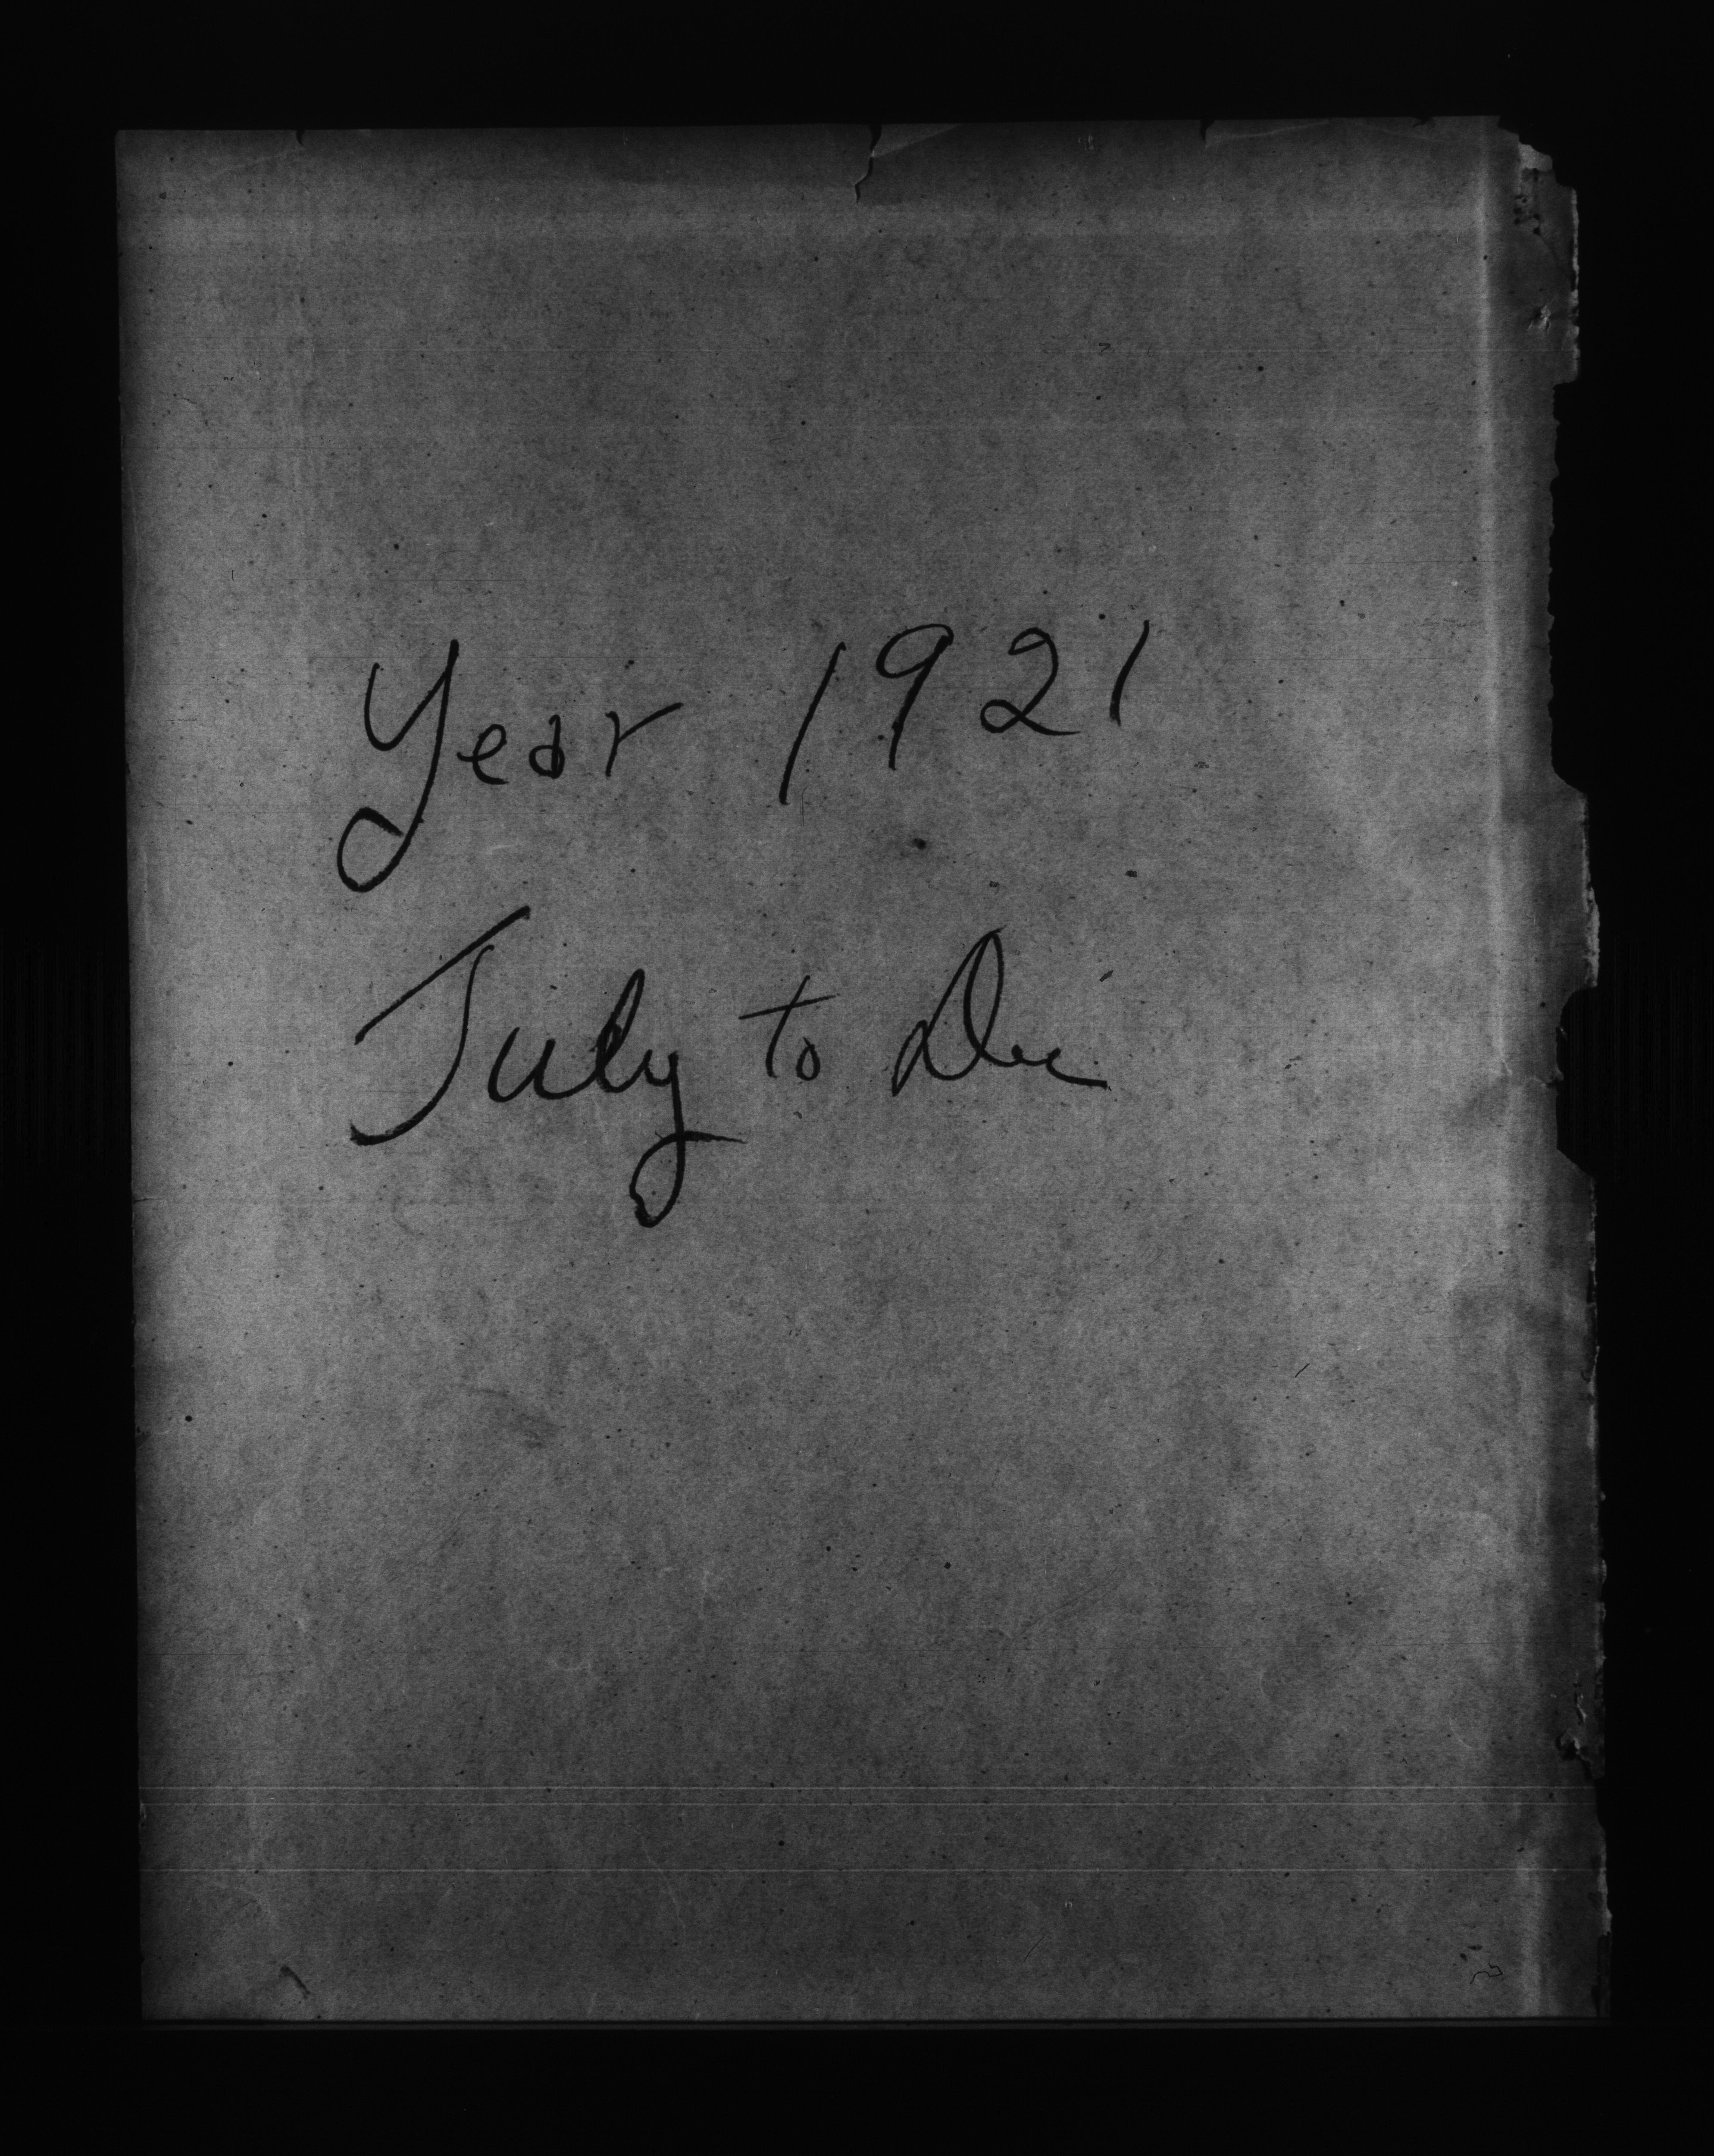 Year 1921
July to Dec